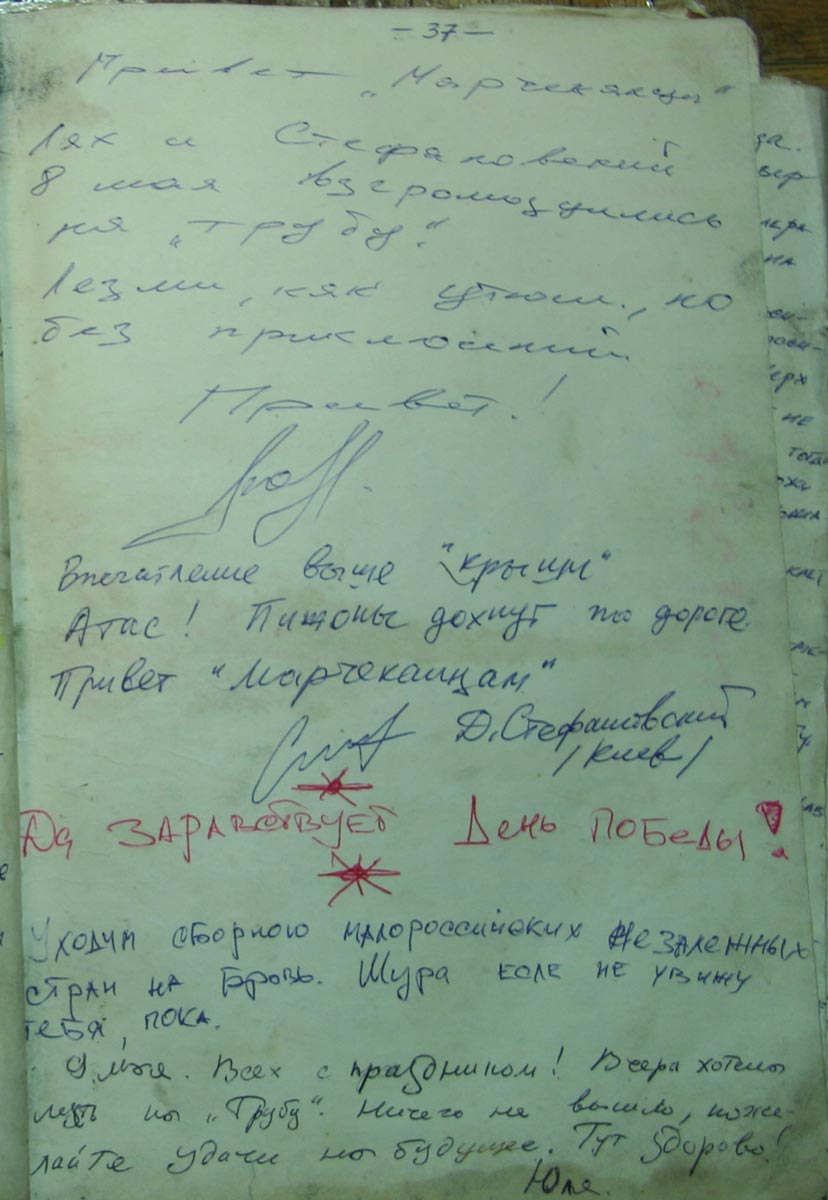 - 37 -
Привет „Марчеканцы"
Лях и Стефановский
8 мая взгромоздились
на „трубу".
Лезли, как утюги, но
без приключений.
Привет!
Впечатление выше "крыши"
Атас! Пижоны дохнут по дороге.
Привет "Марчеканцам"
Д. Стефановский
/Киев/
Да ЗДРАВСТВУЕТ День ПОБеДы!
Уходим сборною малороссийских Незалежных
стран на Бровь. Шура если не увижу
тебя, пока.
Всех с праздником! Вчера хотели
лезть на „Трубу". Ничего не вышло, поже-
лайте удачи на будущее. Тут здорово!
Юля.